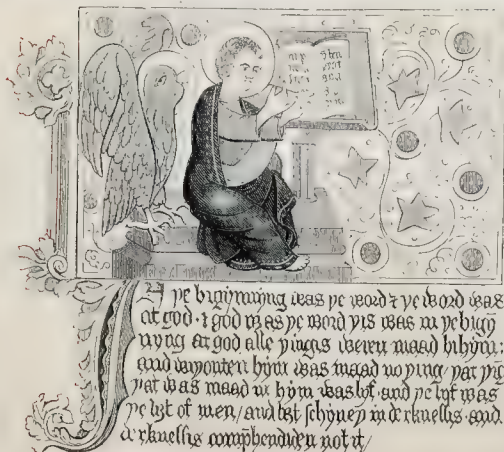 In þe bigynnyng was þe word ⁊ þe word was
at god · ⁊ god was þe word þis was in þe bigyn
nyng at god alle þingis weren maad bi hym :
and wiþouten hym was maad no þing / þat þīg
þat was maad in hym was lyf · and þe lyf was
þe liȝt of men / and liȝt schyneþ in derknessis · and
derknessis comp̄hendiden not it /